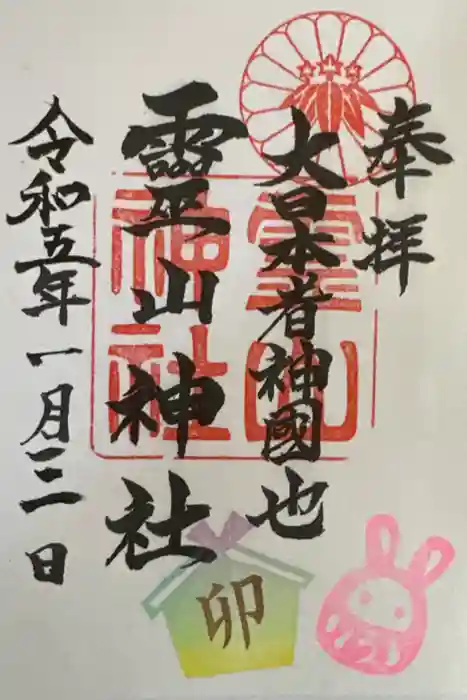 奉拝
大日本者神國也
靈山神社
令和五年一月三日
靈山神社
卯